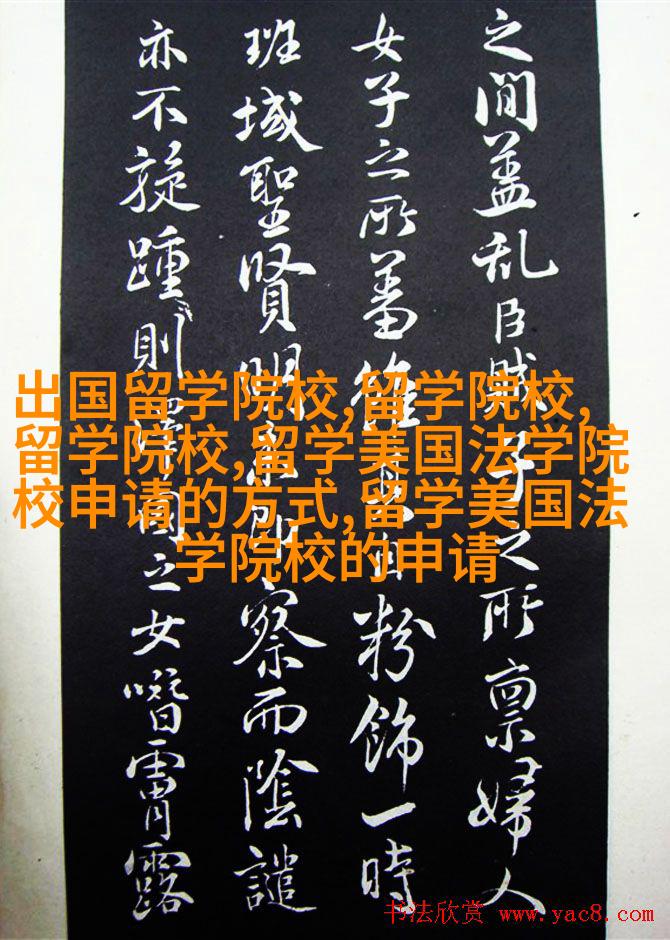 之間盖乱臣賊子之所禀婦人
女子之所蓄雖自粉飾一時
班域聖賢明察而陰譴
亦不旋踵則國之女噆霄露
出国留学院校,留学院校,
留学院校,留学美国法学院
校申请的方式,留学美国法
学院校的申请
书法欣赏 www.yac8.com